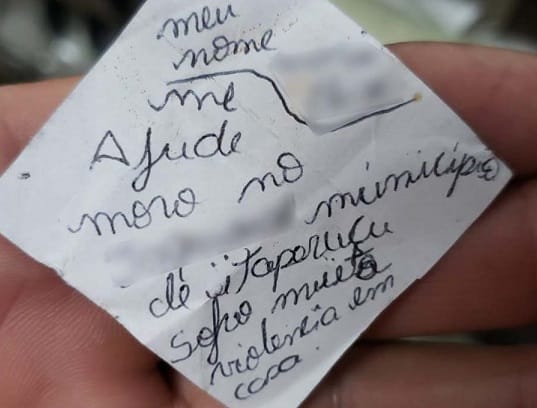 meu
nome
me
Ajude
moro no
município
dé iitaparucu
sofro muieta
violencia em
casa.